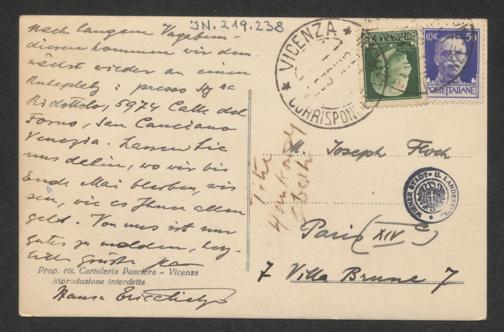 IN. 219.238
nach langem Vagabun-
dieren kommen wir dem-
nächst wieder an einen
Ruheplatz: presso Sig.ra
Ridottolo, 5974 Calle del
Forno, San Canciano
Venezia. Lassen Sie
uns dahin, wo wir bis
Ende Mai bleiben, wis-
sen, wie es Ihnen allen
geht. Von uns ist nur
Gutes zu melden, herz-
liche Grüße
Prop. ris. Cartoleria Panciera - Vicenza
Riproduzione interdetta
Hansa
VICENZA
CORRISPON
POSTE ITALIANE
50
M. Joseph Floch
WIENER STADT- U. LANDESBIBL.
Paris (XIVe)
7 Villa Brune 7